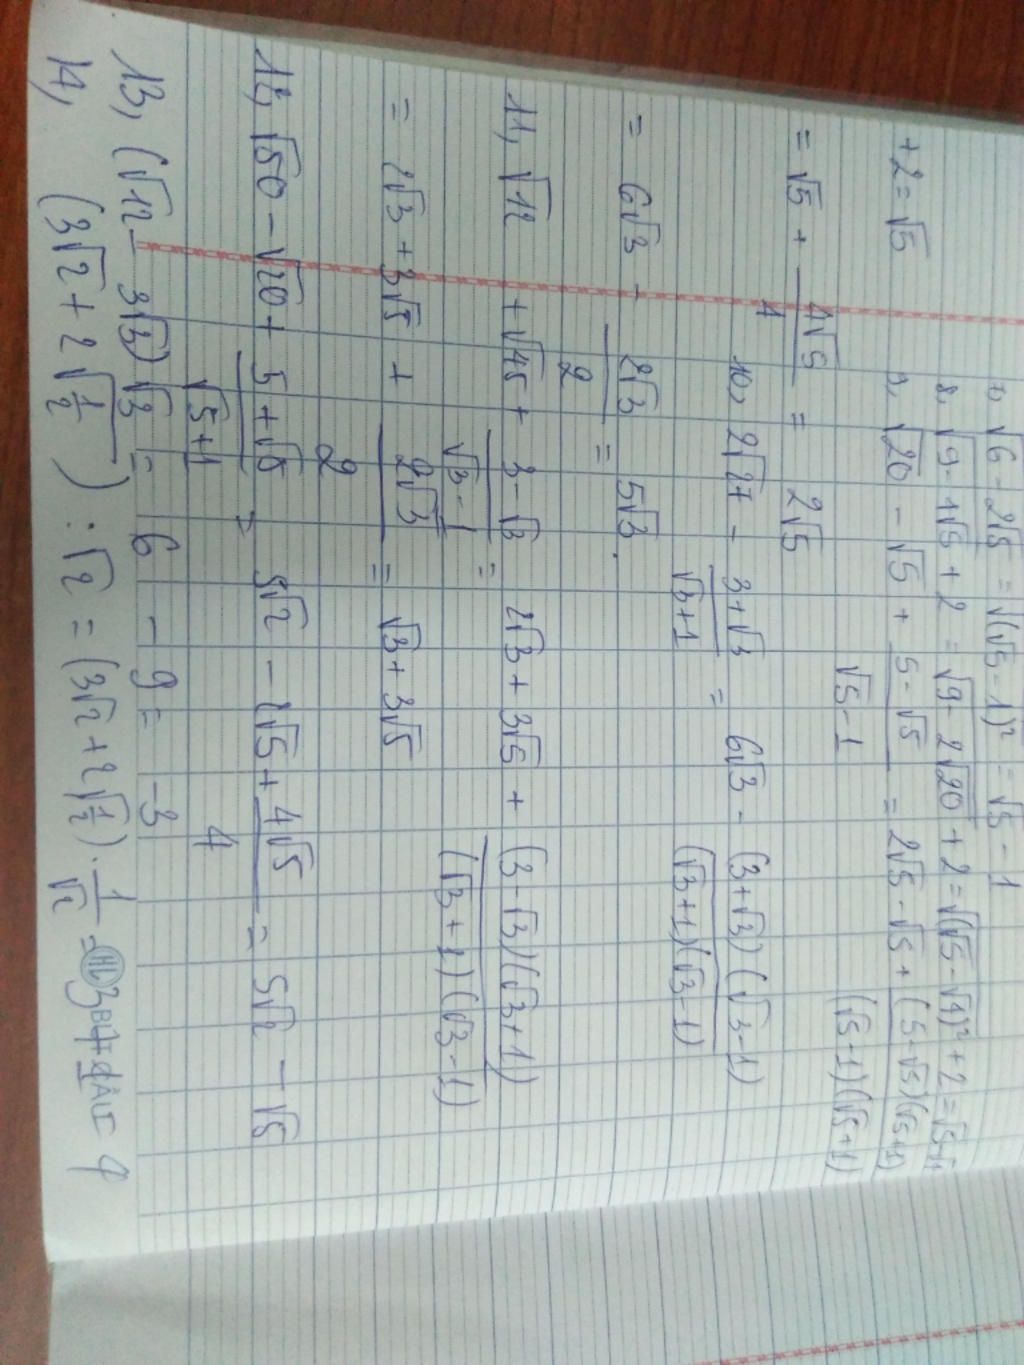 7, √(6 - 2√5) = √((√5 - 1)²) = √5 - 1
8, √(9 - 4√5) + 2 = √(9 - 2√20) + 2 = √((√5 - √4)²) + 2 =
+ 2 = √5
9, √20 - √5 + (5 - √5)/(√5 - 1) = 2√5 - √5 + (5 - √5)(√5 + 1)/(√5 - 1)(√5 + 1)
= √5 + 4√5/4 = 2√5
10, 2√27 - (3 + √3)/(√3 + 1) = 6√3 - (3 + √3)(√3 - 1)/(√3 + 1)(√3 - 1)
= 6√3 - 2√3/2 = 5√3.
11, √12 + √45 + (3 - √3)/(√3 - 1) = 2√3 + 3√5 + (3 - √3)(√3 + 1)/(√3 + 1)(√3 - 1)
= 2√3 + 3√5 + 2√3/2 = √3 + 3√5
12, √50 - √20 + (5 + √5)/(√5 + 1) = 5√2 - 2√5 + 4√5/4 = 5√2 - √5
13, (√12 - 3√3)√3 = 6 - 9 = -3
14, (3√2 + 2√(1/2)) : √2 = (3√2 + 2√(1/2)) · 1/√2 = 3 + 1 = 4